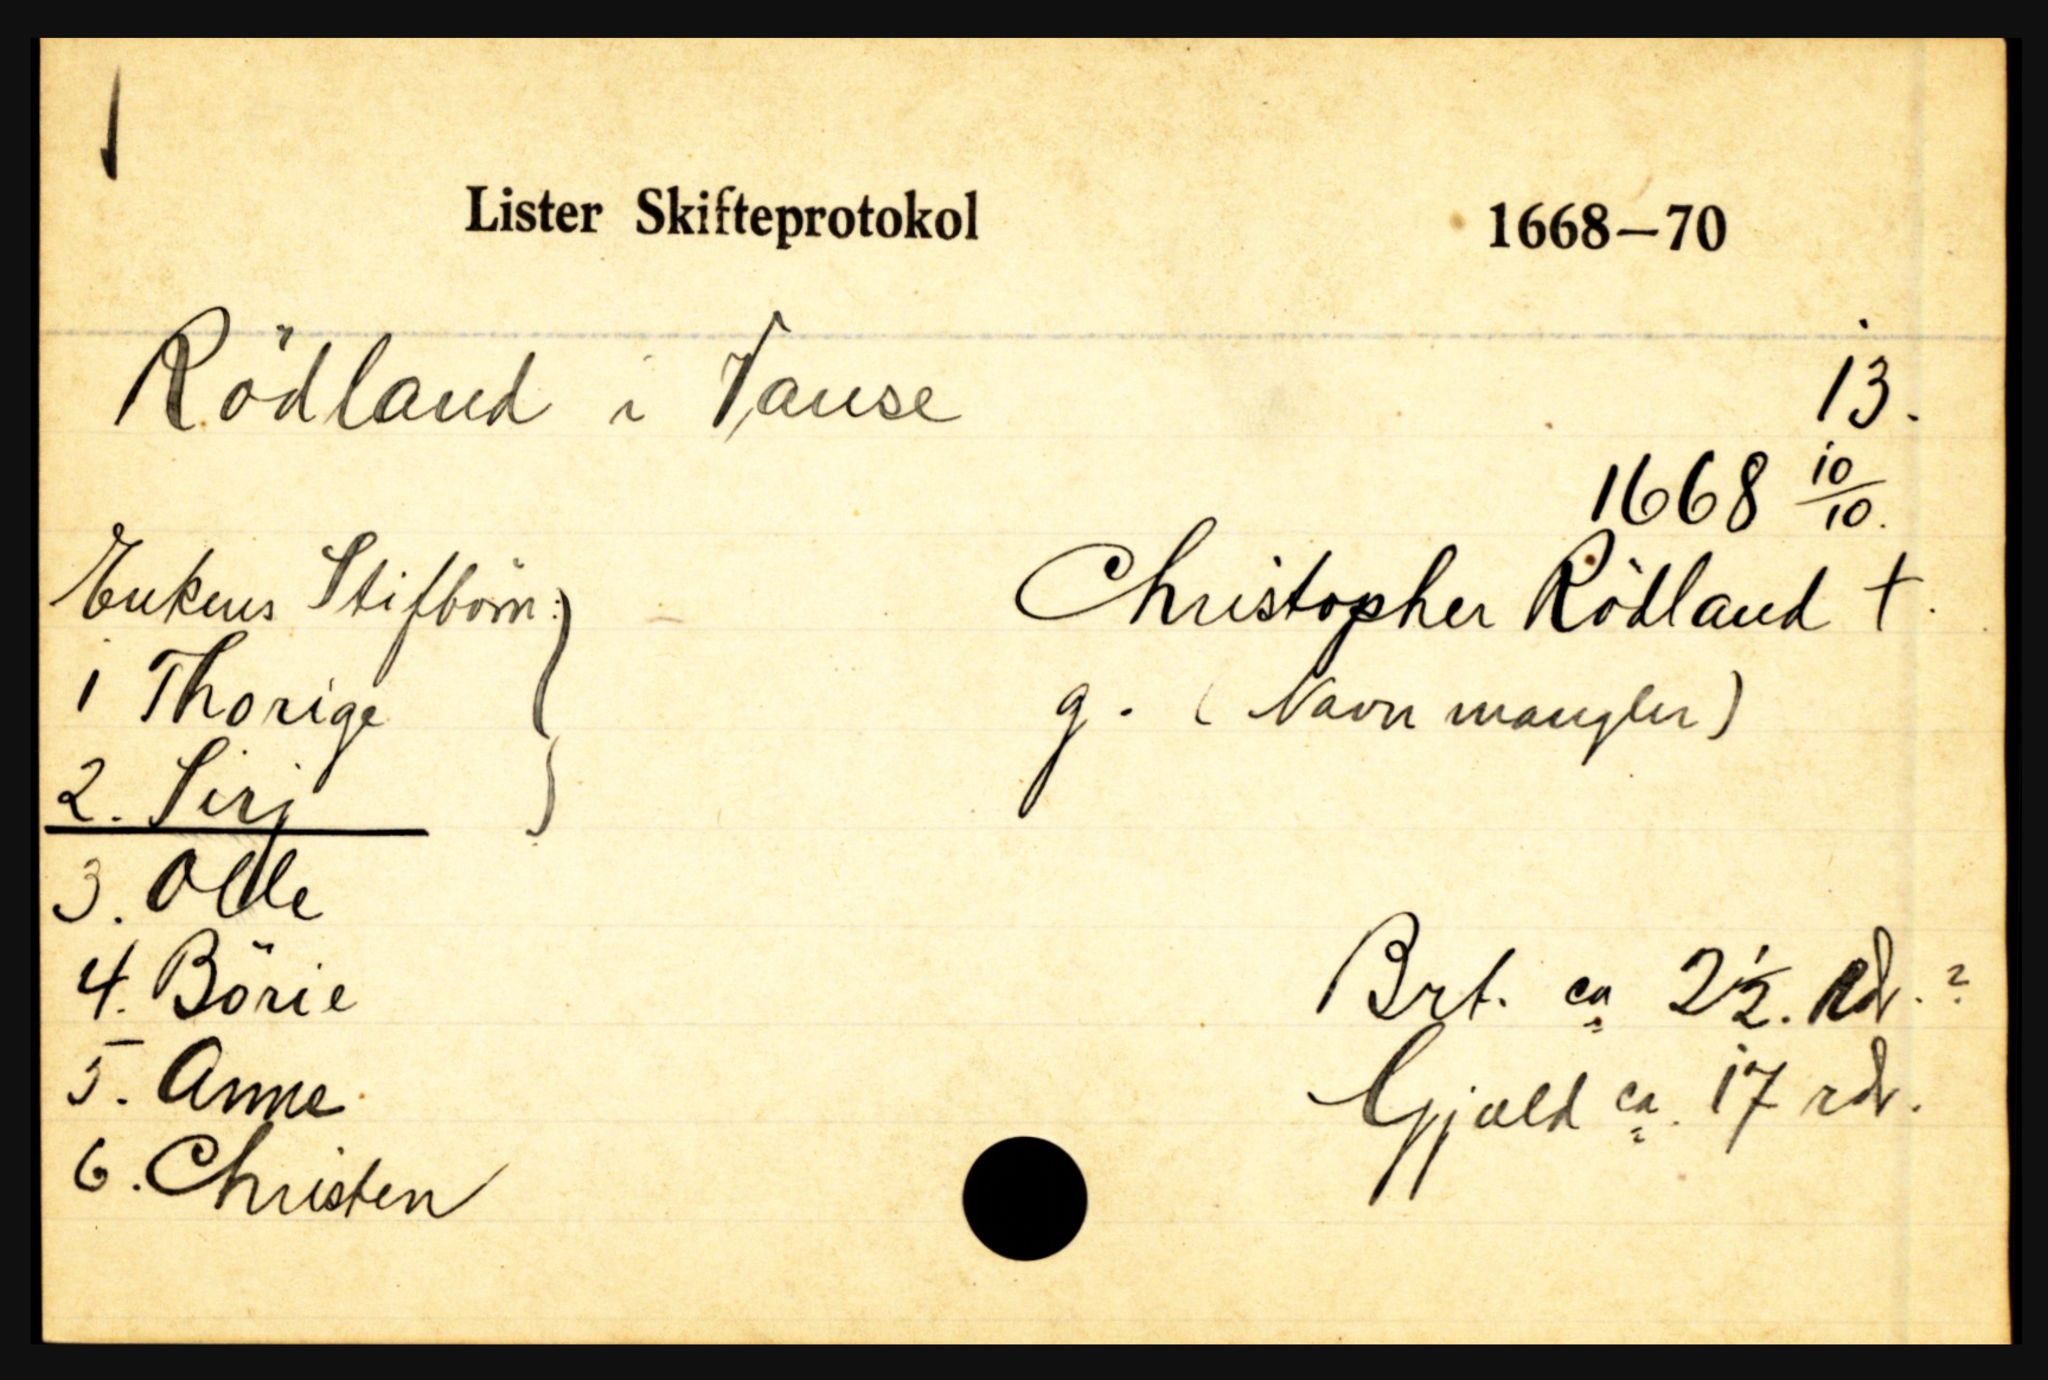 Lister Skifteprotokol 1668—70
Rödland i Vanse 13.
1668 10/10.
Enkens Stifbörn:
Christopher Rödland †.
1 Thorige
g. (Navn mangler)
2. Sirj
3. Olle
4. Börie
Brt. ca 2 1/2. Rdr. ?
5. Anne
Gjæld ca. 17 rdr.
6. Christen